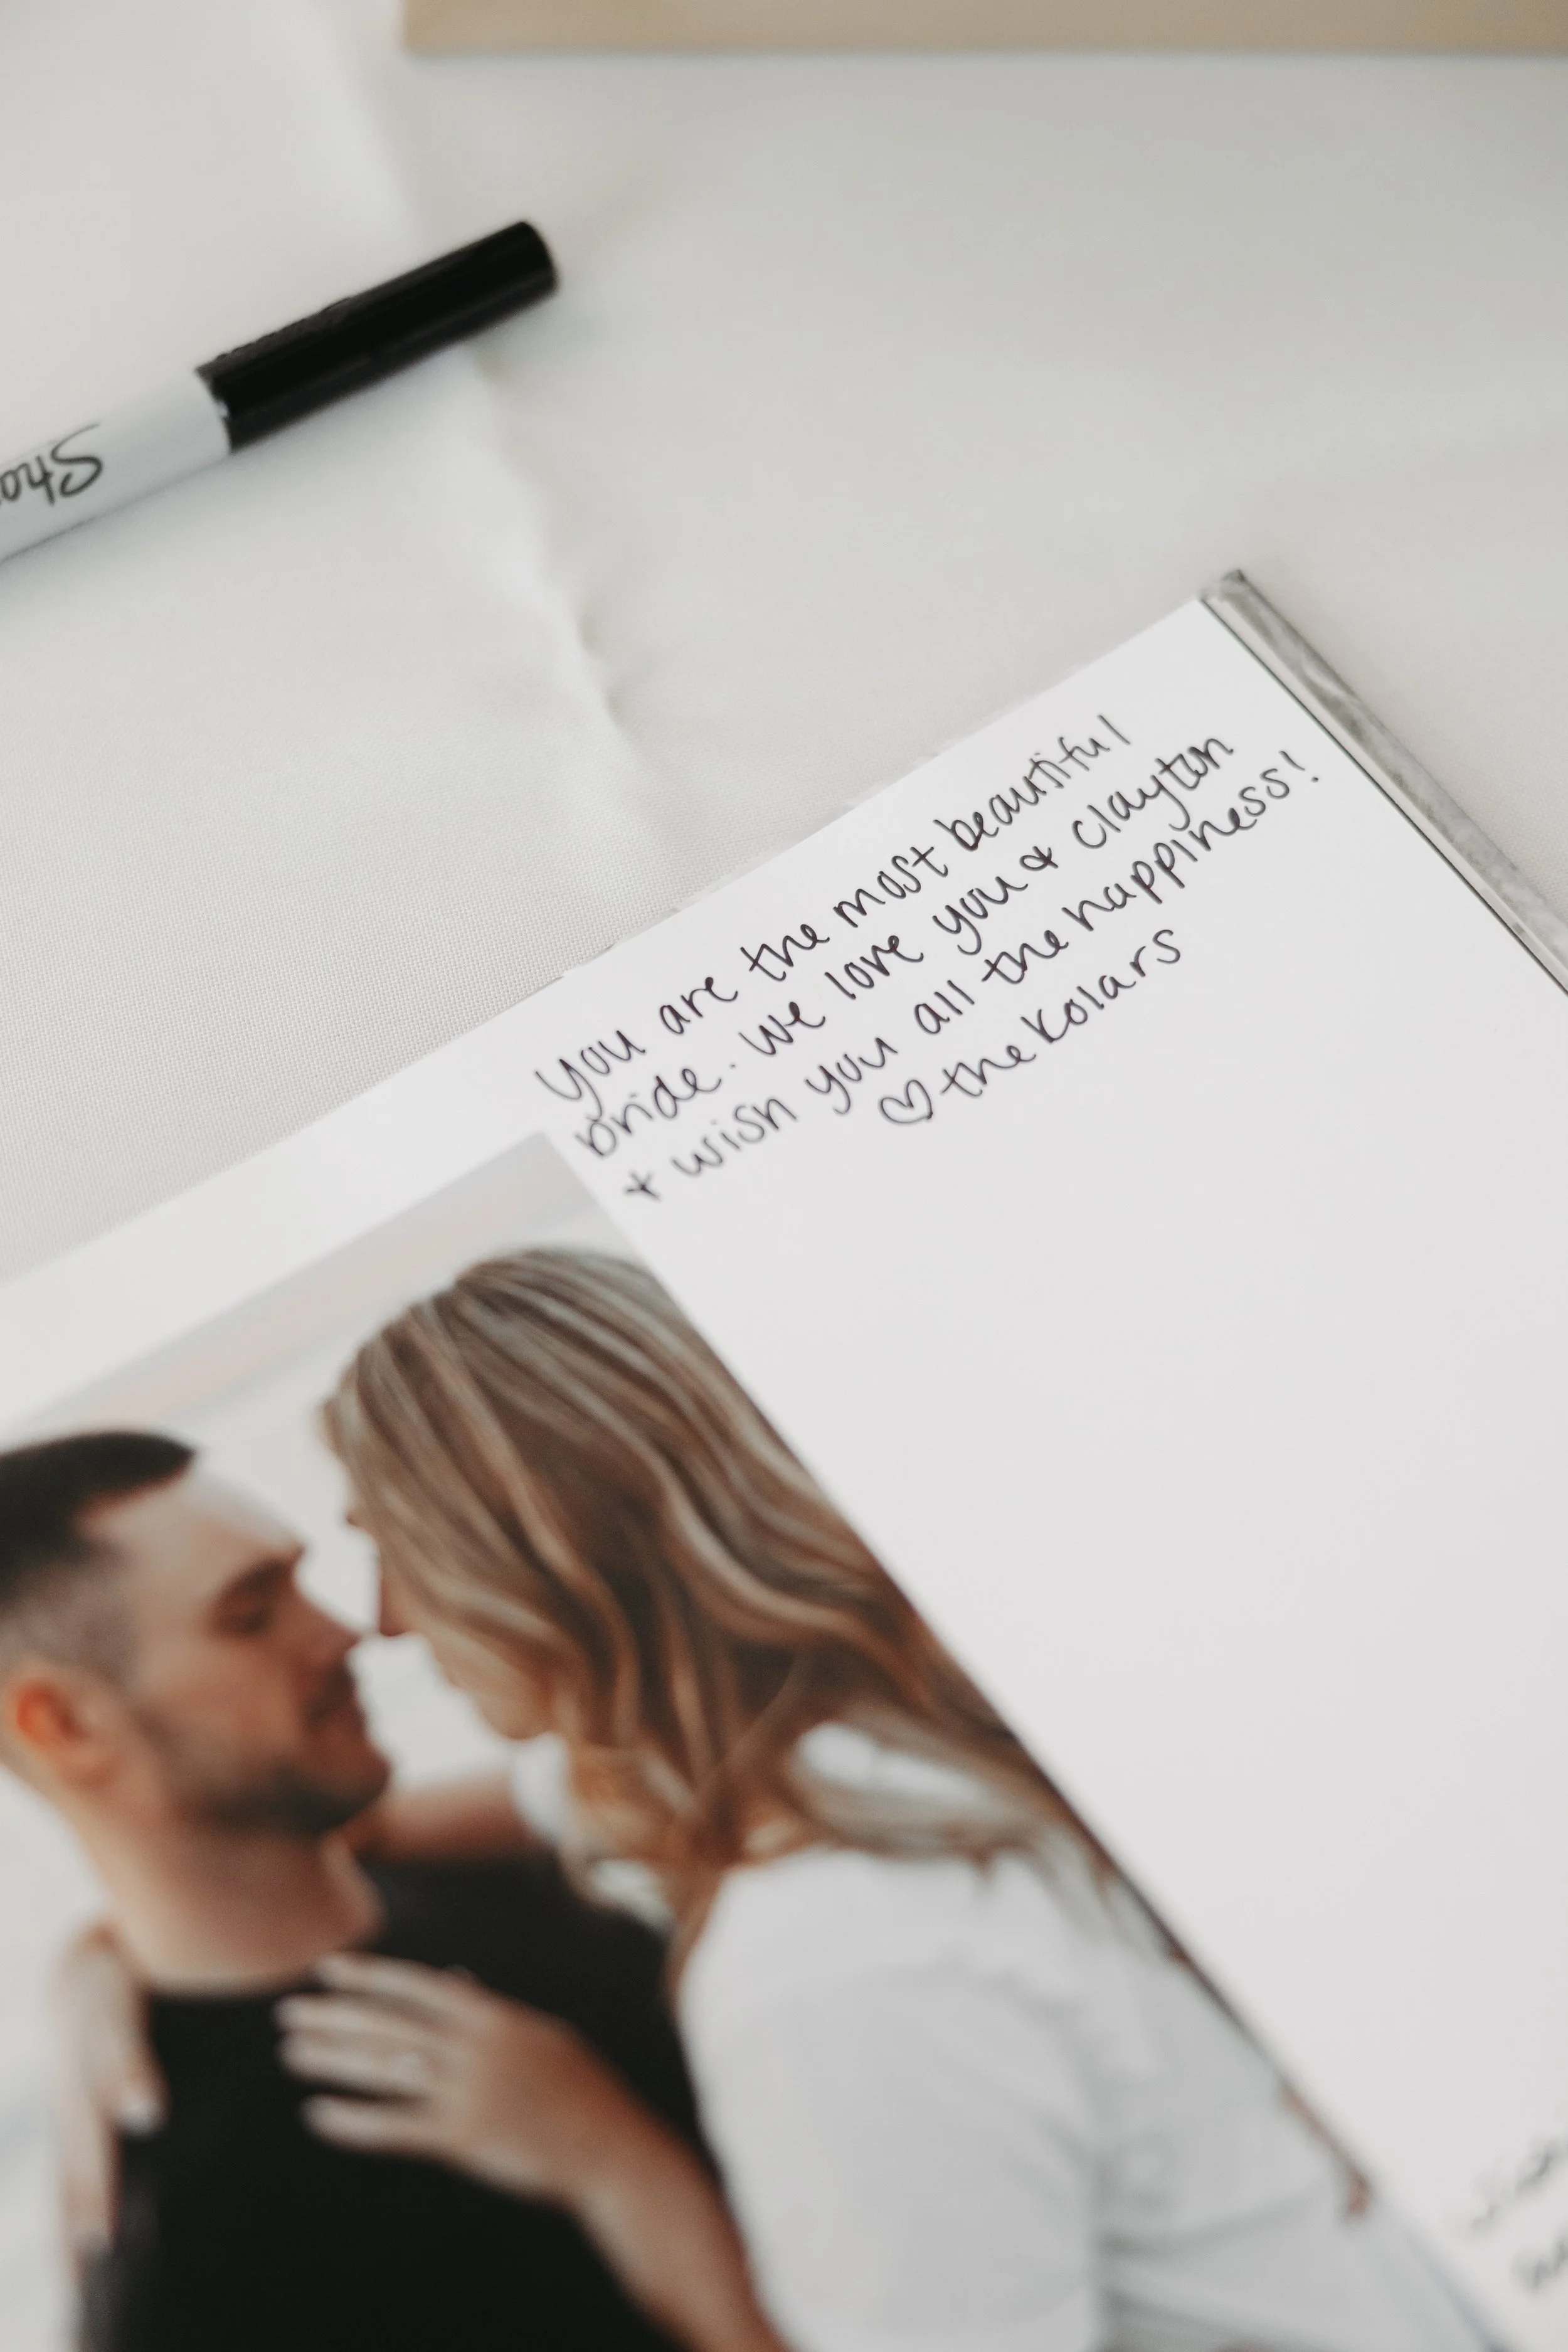 Sha
You are the most beautiful
bride. We love you & Clayton
+ wish you all the happiness!
♡ the Kolars